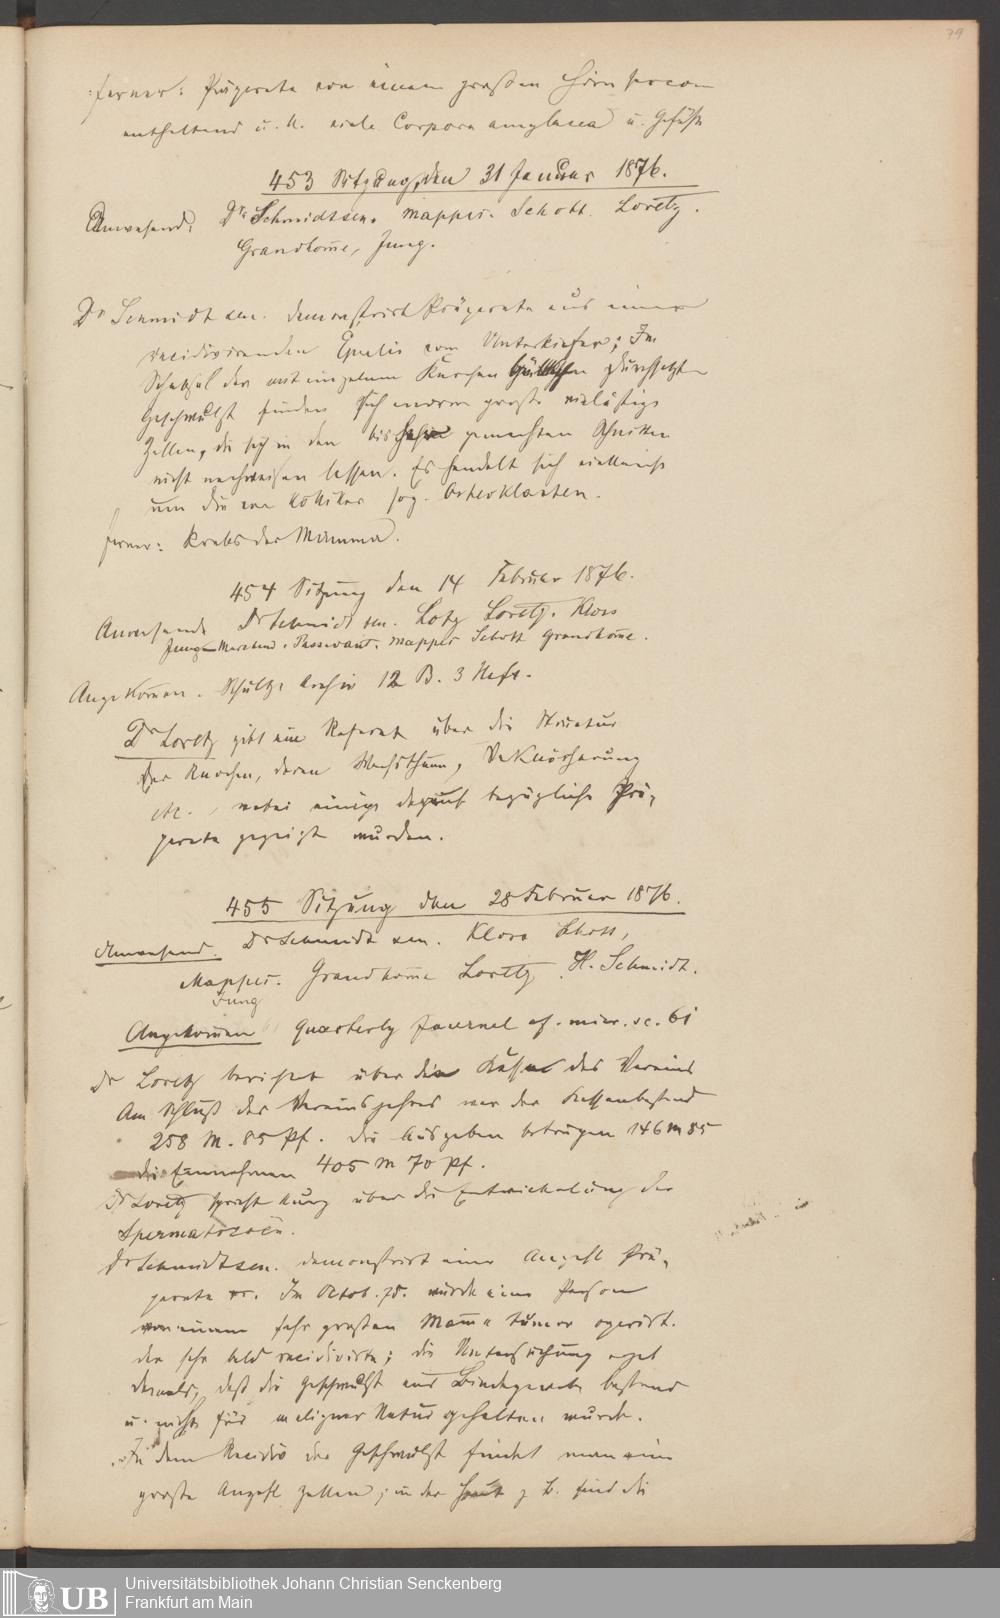 79
ferner: Präparate von einem großen Hirnsarcom
enthaltend u. A. viele Corpora amylacea u. Gefäße
453 Sitzung, den 31 Januar 1876.
Anwesend: Dr Schmidt sen. Mappes. Schott. Loretz.
Grandhom̅e, Jung.
Dr Schmidt sen. demonstrirt Präparate aus einer
recidivirenden Epulis vom Unterkiefer; Im
der mit einzelnen Knochen durchsetzten
Geschwulst finden sich enorm große
Zellen, die sich in den bisher gemachten Schnitten
nicht nachweisen lassen. Es handelt sich vielleicht
um die von Kölliker sog. Osteoklasten.
ferner: Krebs der Mamma.
454 Sitzung den 14 Februar 1876.
Anwesende Dr Schmidt sen. Lotz Loretz. Kloss
Jung Passavant. Mappes Schott Grandhom̅e.
Angekom̅en. Schultze Archiv 12 B. 3 Heft.
Dr Loretz gibt ein Referat über die Structur
der Knochen, deren Wachsthum, Verknöcherung
etc., wobei einige darauf bezügliche Prä-
parate gezeigt wurden.
455 Sitzung den 28 Februar 1876.
Anwesend. Dr Schmidt sen. Kloss Schott,
Mappes. Grandhom̅e Loretz. H. Schmidt.
Jung
Angekom̅en Quarterly Journal of. micr. sc. 61
Dr Loretz berichtet über die Kasse des Vereins
Am Schluß des Vereinsjahres war der Kassenbestand
258 M. 85 Pf. die Ausgaben betrugen 146 M 85
die Einnahmen 405 M 70 Pf.
Dr Loretz spricht kurz über die Entwickelung der
Spermatozoën.
Dr Schmidt sen. demonstrirt eine Anzahl Prä-
parate Im Octob. 75. wurde eine Person
von einem sehr großen Mam̅a tumor operirt.
der sehr bald recidivirte; die Untersuchung ergab
damals, daß die Geschwulst aus Bindegewebe bestand
u. nicht für maligner Natur gehalten wurde.
In dem Recidiv der Geschwulst findet man eine
große Anzahl Zellen; in der Haut z. B. sind die
UB Universitätsbibliothek Johann Christian Senckenberg
Frankfurt am Main